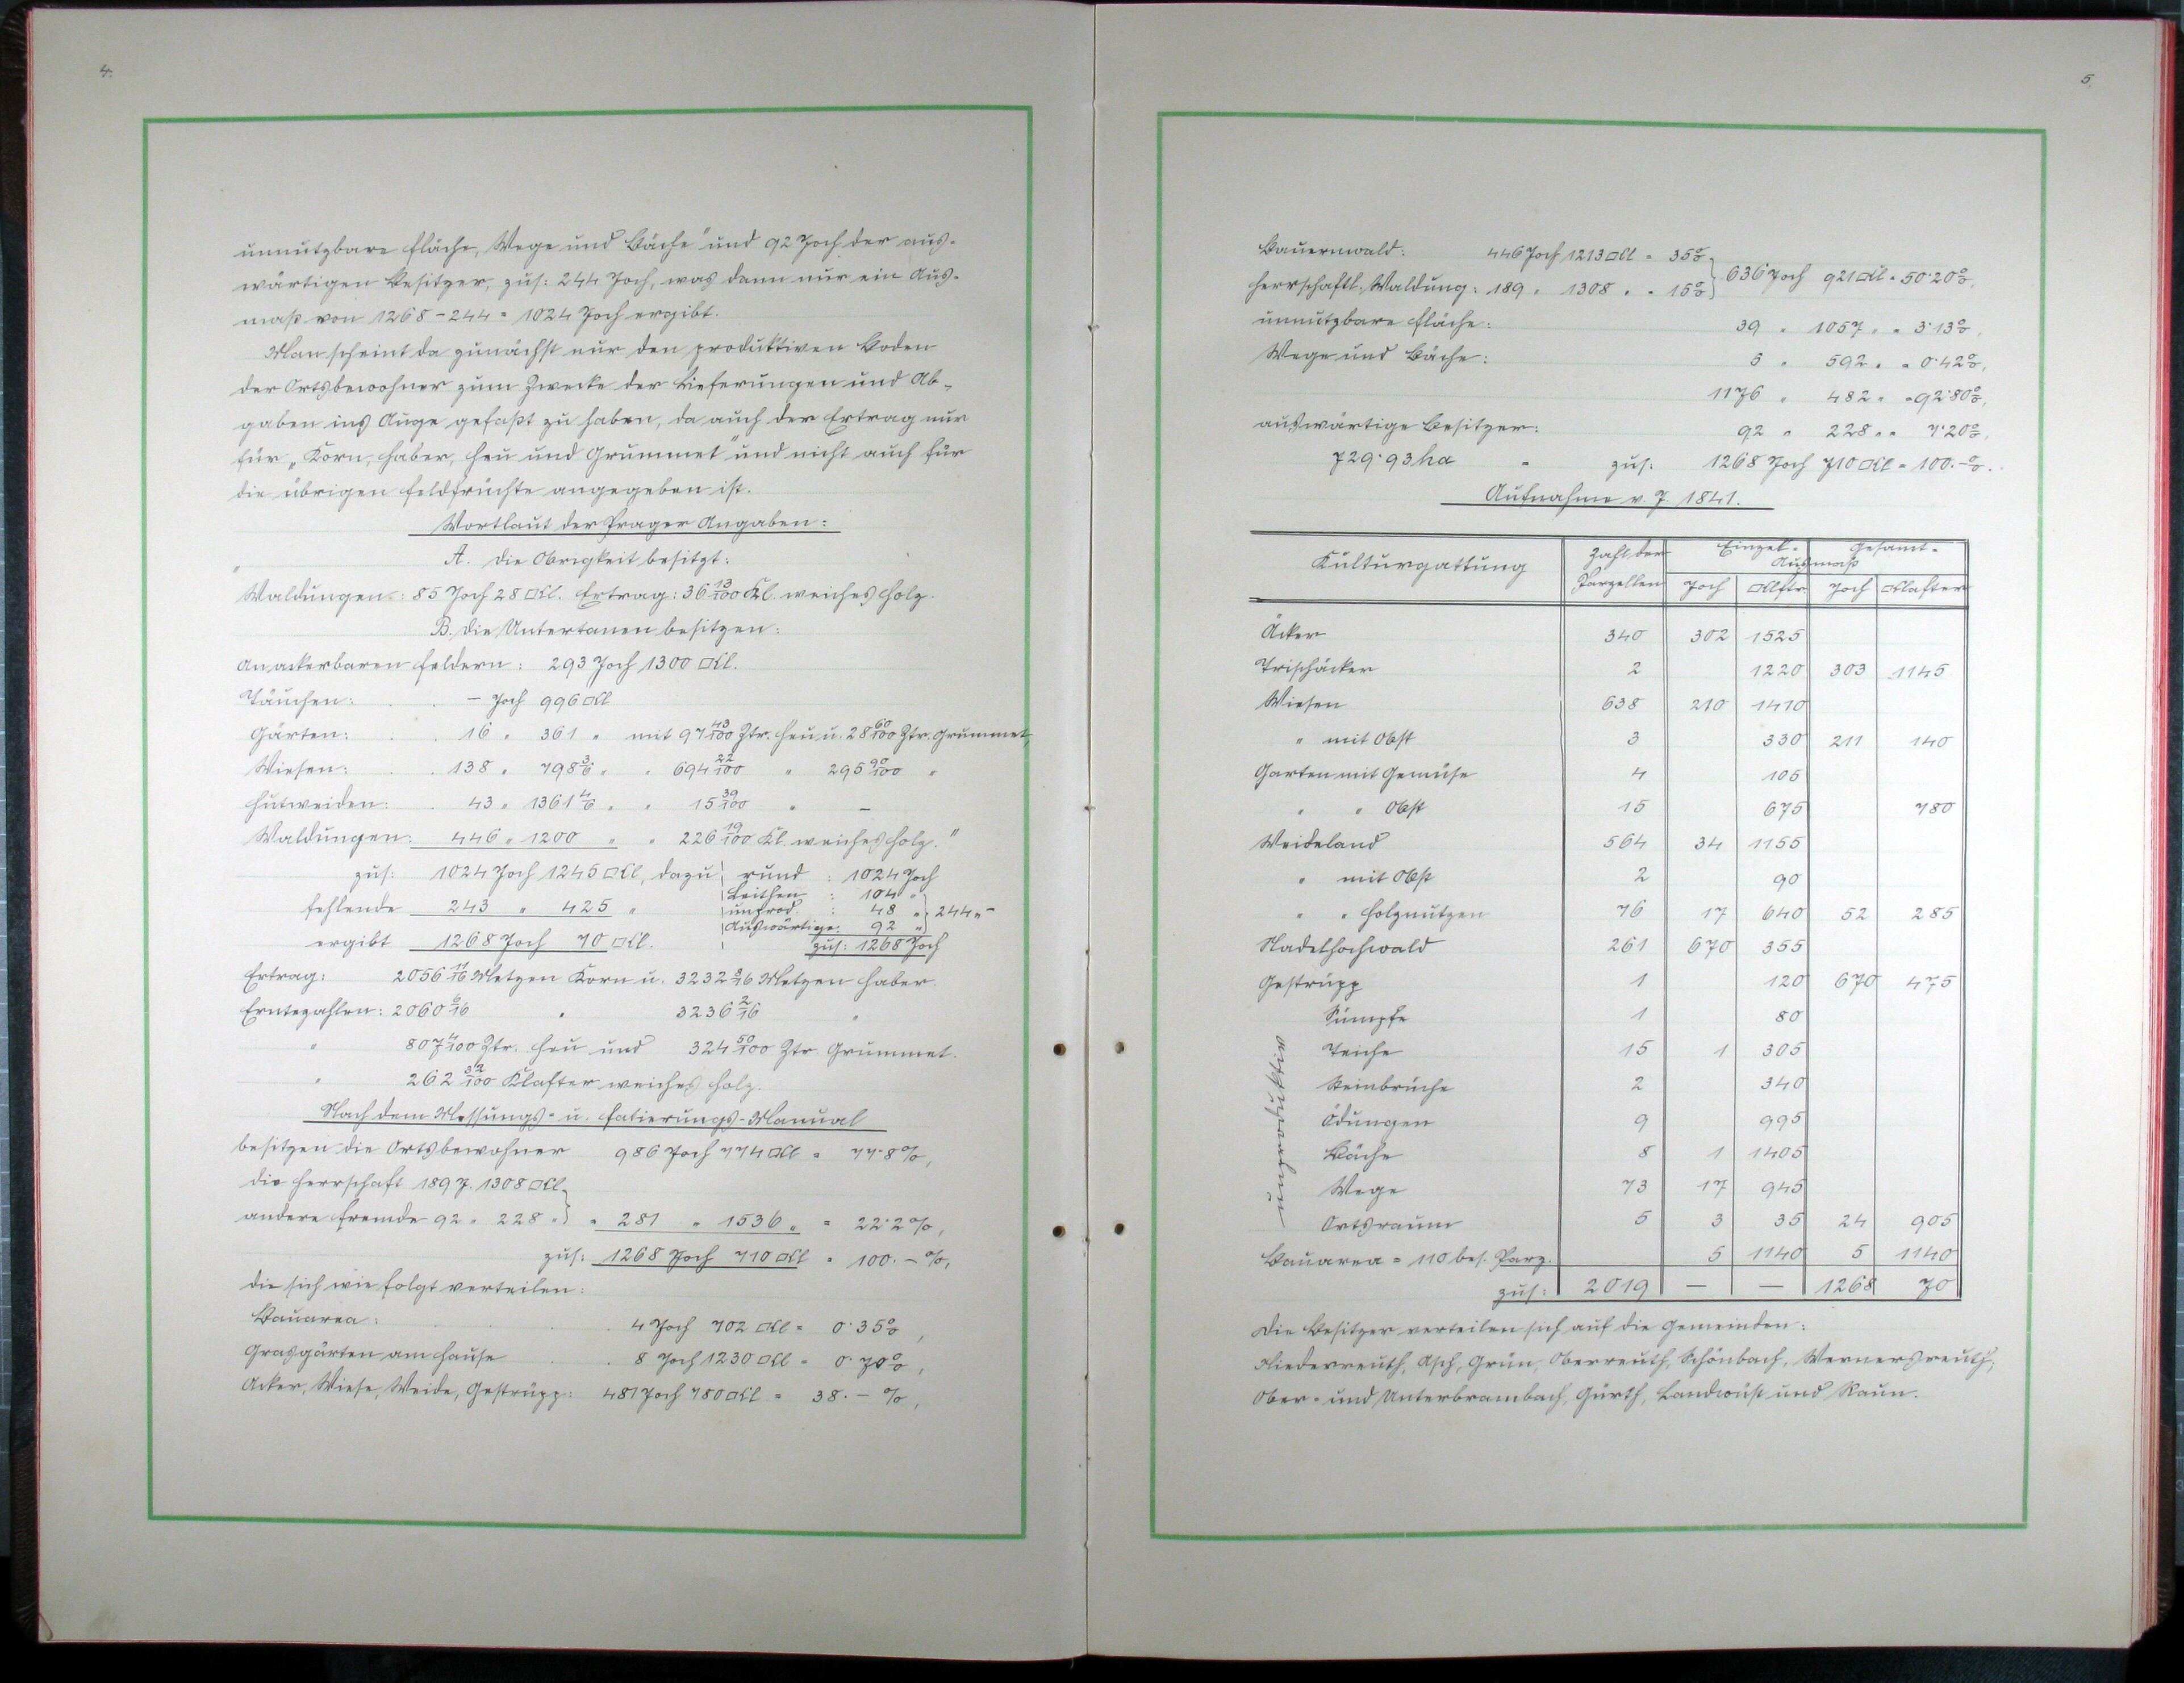 4.
unnutzbare Fläche, Wege und Bäche" und 92 Joch der aus-
wärtigen Besitzer, zus: 244 Joch, was dann nur ein Aus-
maß von 1268 - 244 = 1024 Joch ergibt.
Man scheint da zunächst nur den produktiven Boden
der Ortsbewohner zum Zwecke der Lieferungen und Ab-
gaben ins Auge gefaßt zu haben, da auch der Ertrag nur
für „Korn, Haber, Heu und Grummet" und nicht auch für
die übrigen Feldfrüchte angegeben ist.
Wortlaut der Prager Angaben:
A. Die Obrigkeit besitzt:
"Waldungen: 85 Joch 28 □Kl. Ertrag: 36 13/100 Kl. weiches Holz.
B. Die Untertanen besitzen:
An ackerbaren Feldern: 293 Joch 1300 □Kl.
Täuchen: . . - Joch 996 □Kl
Gärten: . . 16 " 361 " mit 97 43/100 Ztr. Heu u. 28 60/100 Ztr. Grummet,
Wiesen: . . 138 " 798 3/6 " " 694 22/100 " 295 90/100 "
Hutweiden: . 43 " 1361 4/6 " " 15 39/100 " -
Waldungen: 446 " 1200 " " 226 19/100 Kl. weiches Holz."
zus: 1024 Joch 1245 □Kl, dazu rund : 1024 Joch
Leithen : 104 "
fehlende 243 " 425 " unprod. : 48 " } 244 " -
Auswärtige: 92 "
ergibt 1268 Joch 70 □Kl. zus: 1268 Joch
Ertrag: 2056 11/16 Metzen Korn u. 3232 8/16 Metzen Haber.
Erntezahlen: 2060 6/16 " 3236 2/16 "
" 807 4/100 Ztr. Heu und 324 50/100 Ztr. Grummet.
" 262 32/100 Klafter weiches Holz.
Nach dem Messungs- u. Fatierungs-Manual
besitzen die Ortsbewohner 986 Joch 774 □Kl = 77·8 %,
die Herrschaft 189 J. 1308 □Kl }
andere Fremde 92 " 228 " } = 281 " 1536 " = 22·2 %,
zus: 1268 Joch 710 □Kl = 100. - %,
die sich wie folgt verteilen:
Bauarea: . . . 4 Joch 702 □Kl = 0·35 %,
Grasgärten am Hause . . 8 Joch 1230 □Kl = 0·70 %,
Acker, Wiese, Weide, Gestrüpp: 481 Joch 780 □Kl = 38. - %,
5.
Bauernwald: 446 Joch 1213 □Kl = 35 % }
herrschaftl. Waldung: 189 " 1308 " = 15 % } 636 Joch 921 □Kl = 50·20 %,
unnutzbare Fläche: 39 " 1057 " = 3·13 %,
Wege und Bäche: 5 " 592 " = 0·42 %,
1176 " 482 " = 92·80 %,
auswärtige Besitzer: 92 " 228 " = 7·20 %,
729·93 ha = zus: 1268 Joch 710 □Kl = 100. - %.
Aufnahme v. J. 1841.
Kulturgattung Zahl der Parzellen Einzel- Gesamt-
Ausmaß
Joch □Klftr Joch □Klafter
Äcker 340 302 1525
Trischäcker 2 1220 303 1145
Wiesen 638 210 1410
" mit Obst 3 330 211 140
Garten mit Gemüse 4 105
" " Obst 15 675 780
Weideland 564 34 1155
" mit Obst 2 90
" " Holznutzen 76 17 640 52 285
Nadelhochwald 261 670 355
Gestrüpp 1 120 670 475
unproduktiv
Sümpfe 1 80
Teiche 15 1 305
Steinbrüche 2 340
Ödungen 9 995
Bäche 8 1 1405
Wege 73 17 945
Ortsraum 5 3 35 24 905
Bauarea = 110 bes. Parz. 5 1140 5 1140
zus: 2019 - - 1268 70
Die Besitzer verteilen sich auf die Gemeinden:
Niederreuth, Asch, Grün, Oberreuth, Schönbach, Wernersreuth,
Ober- und Unterbrambach, Gürth, Landwüst und Raun.